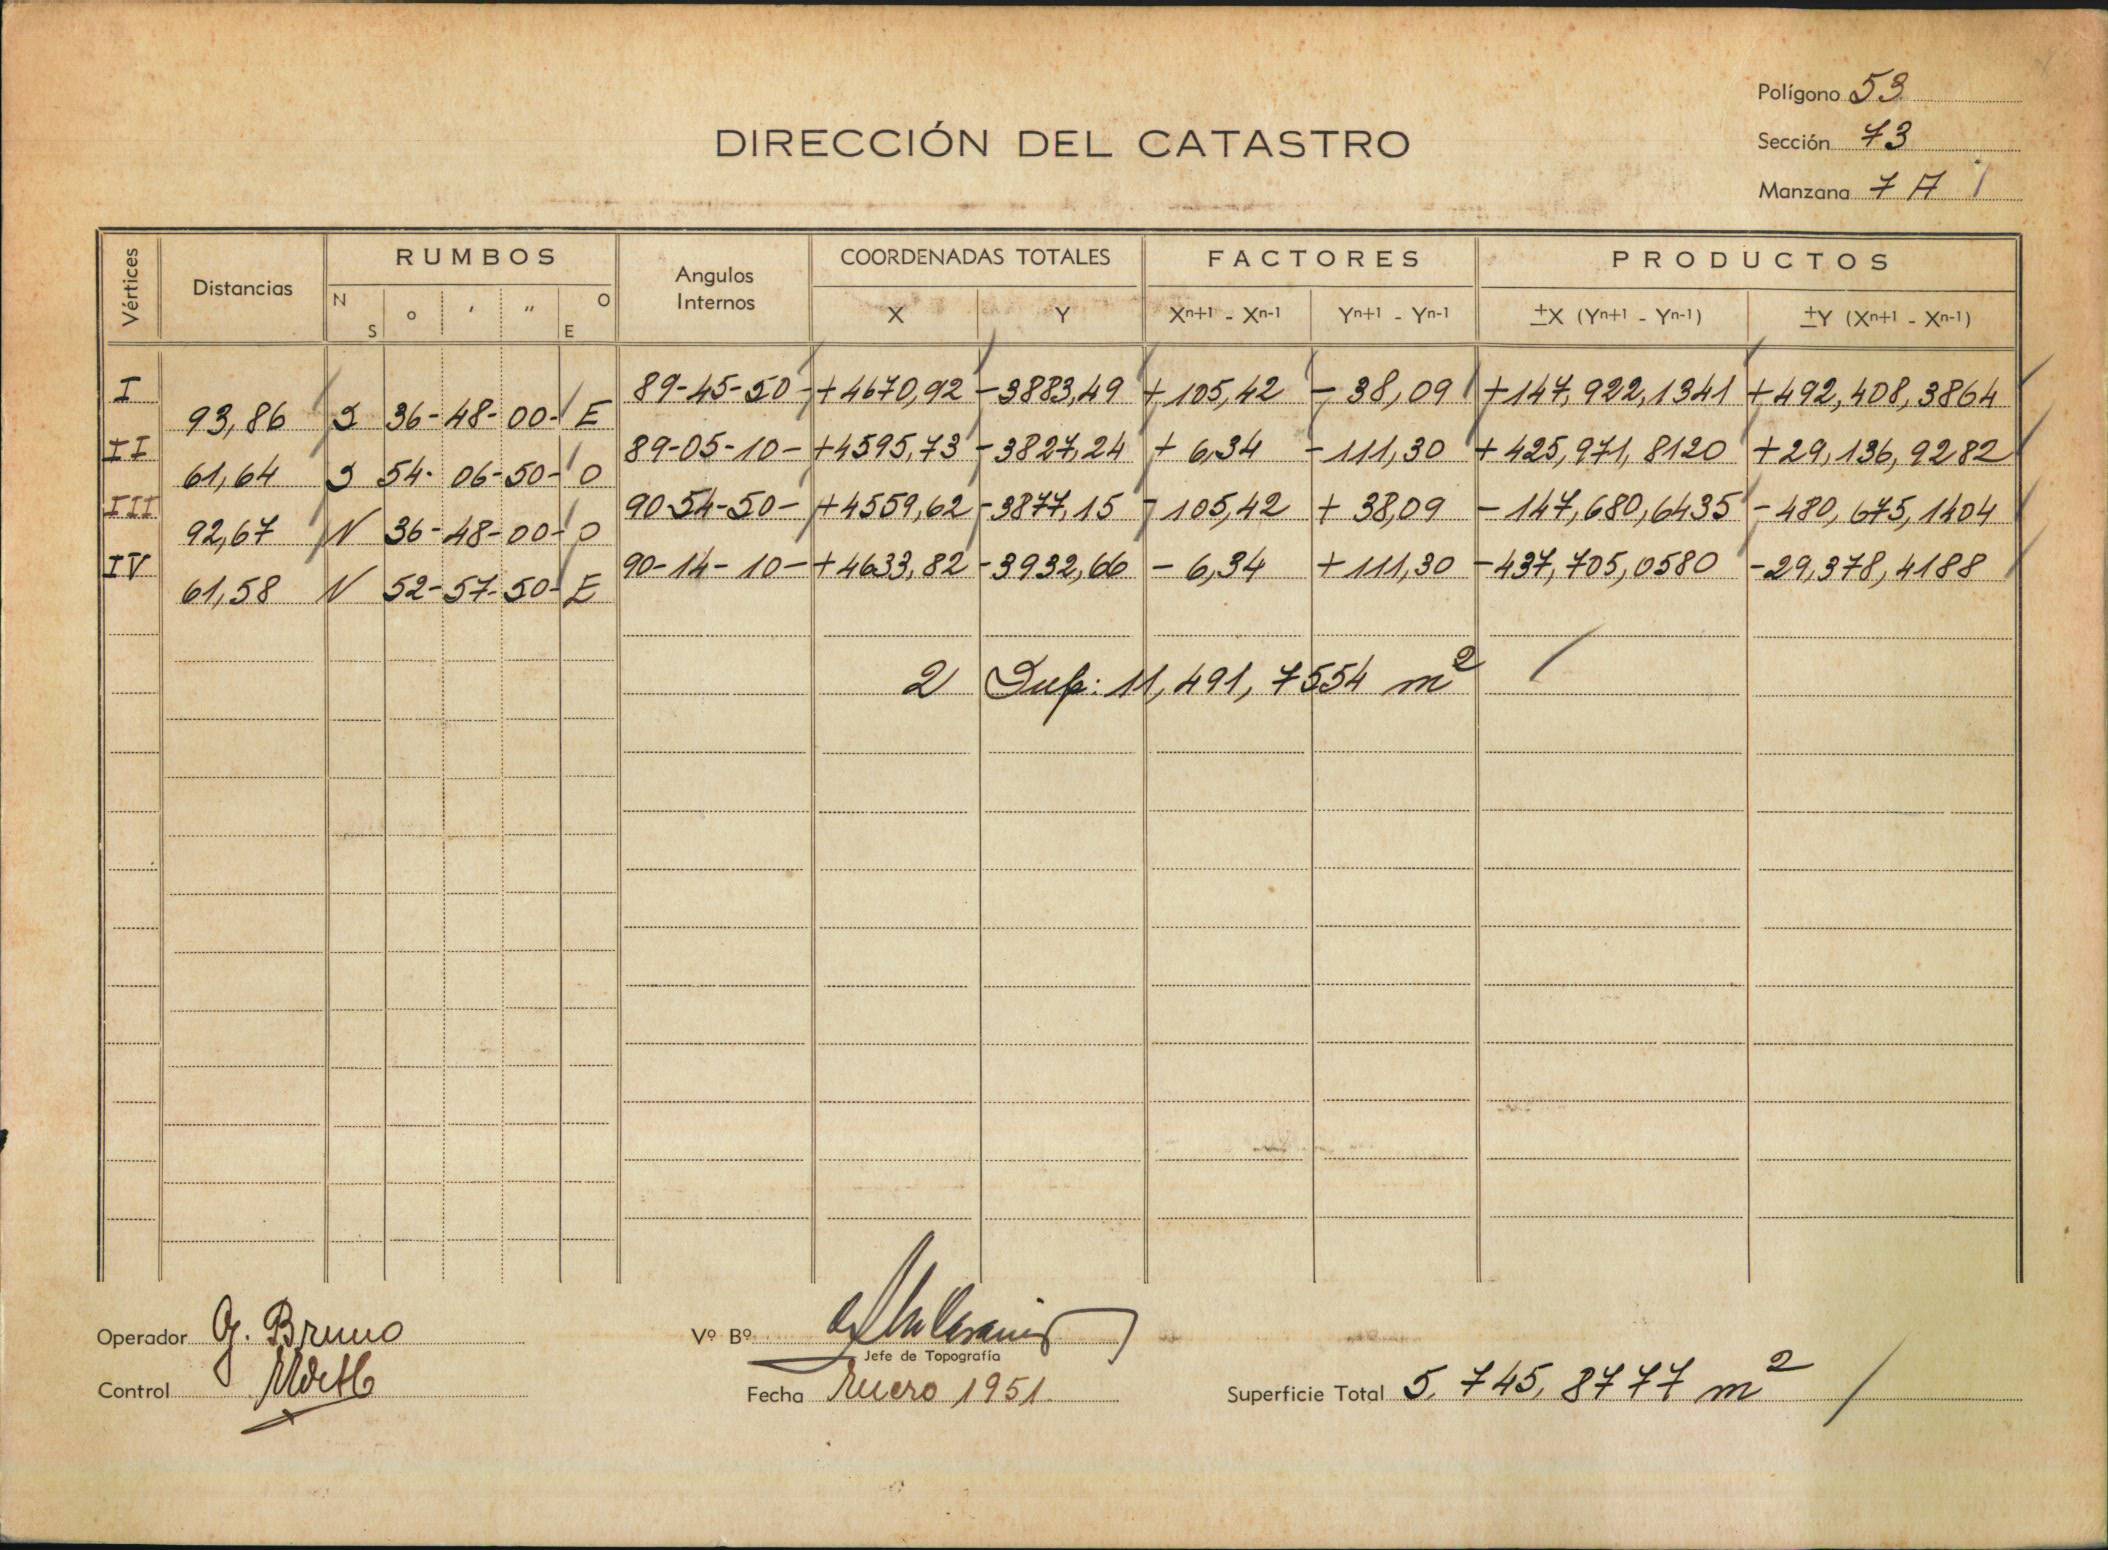 Polígono 53
DIRECCIÓN DEL CATASTRO
Sección 73
Manzana 7 A
Vértices Distancias RUMBOS Angulos Internos COORDENADAS TOTALES FACTORES PRODUCTOS
N S ° ' " O E X Y Xn+1 - Xn-1 Yn+1 - Yn-1 ±X (Yn+1 - Yn-1) ±Y (Xn+1 - Xn-1)
I 89-45-50- +4670,92 -3883,49 +105,42 -38,09 +147,922,1341 +492,408,3864
93,86 S 36-48-00- E
II 89-05-10- +4595,73 -3827,24 +6,34 -111,30 +425,971,8120 +29,136,9282
61,64 S 54-06-50- O
III 90-54-50- +4559,62 -3877,15 -105,42 +38,09 -147,680,6435 -480,675,1404
92,67 N 36-48-00- O
IV 90-14-10- +4633,82 -3932,66 -6,34 +111,30 -437,705,0580 -29,378,4188
61,58 N 52-57-50- E
2 Sup: 11,491,7554 m²
Operador G. Bruno
Vº Bº
Jefe de Topografía
Control
Fecha Enero 1951.
Superficie Total 5.745,8777 m²